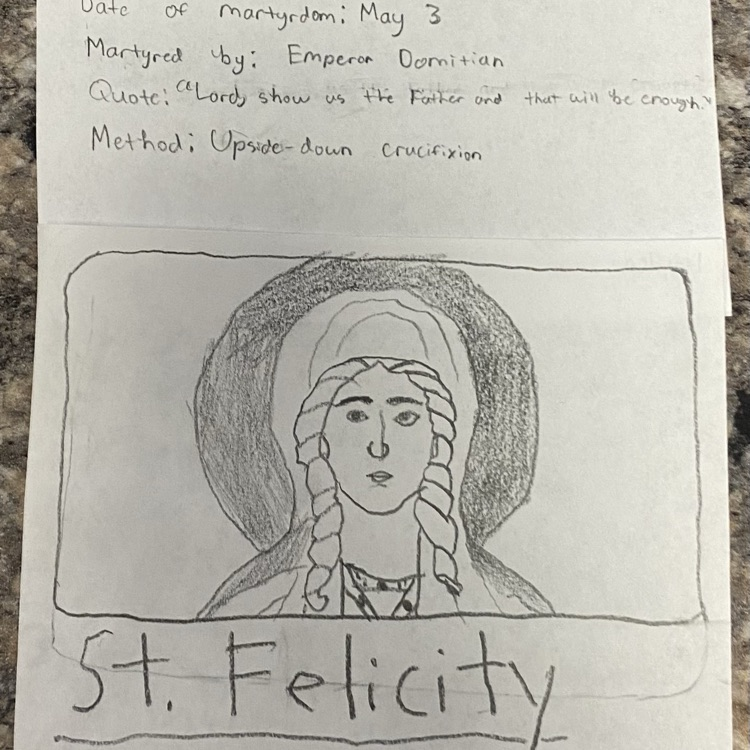 Date of martyrdom: May 3
Martyred by: Emperor Domitian
Quote: "Lord, show us the Father and that will be enough."
Method: Upside-down crucifixion
St. Felicity